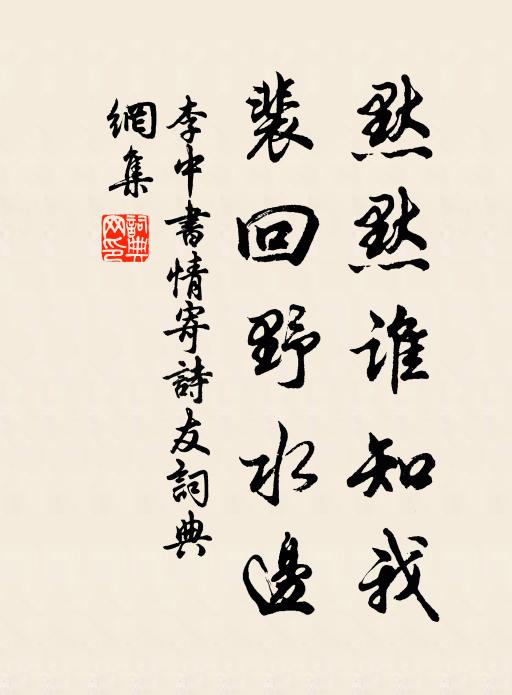 默默誰知我
裴回野水邊
李中書情寄詩友詞典
網集
詞典
网印